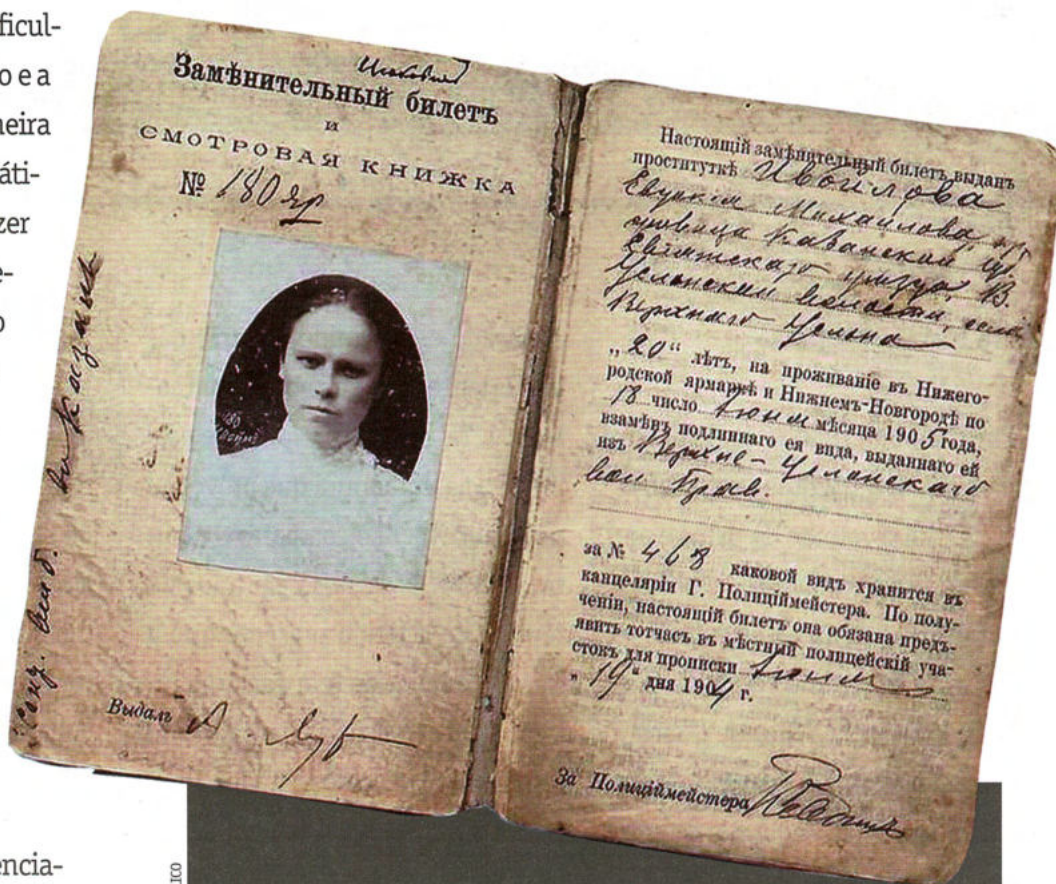 ficul-
o e a
neira
áti-
zer
e-
o
encia-
Замѣнительный билетъ
и
СМОТРОВАЯ КНИЖКА
№ 180
Выдалъ А.
Настоящій замѣнительный билетъ выданъ
проституткѣ Ивойлова
Евгенія Михайлова
Казанской губ
уѣзда, В.
Услонской волости, села
Верхняго Услона
„20“ лѣтъ, на проживаніе въ Нижего-
родской ярмаркѣ и Нижнемъ-Новгородѣ по
18 число Іюня мѣсяца 1905 года,
взамѣнъ подлиннаго ея вида, выданнаго ей
изъ Верхне-Услонскаго
вол. Прав.
за № 468 каковой видъ хранится въ
канцеляріи Г. Полиціймейстера. По полу-
ченіи, настоящій билетъ она обязана предъ-
явить тотчасъ въ мѣстный полицейскій уча-
стокъ для прописки Іюня
„19“ дня 1904 г.
За Полиціймейстера